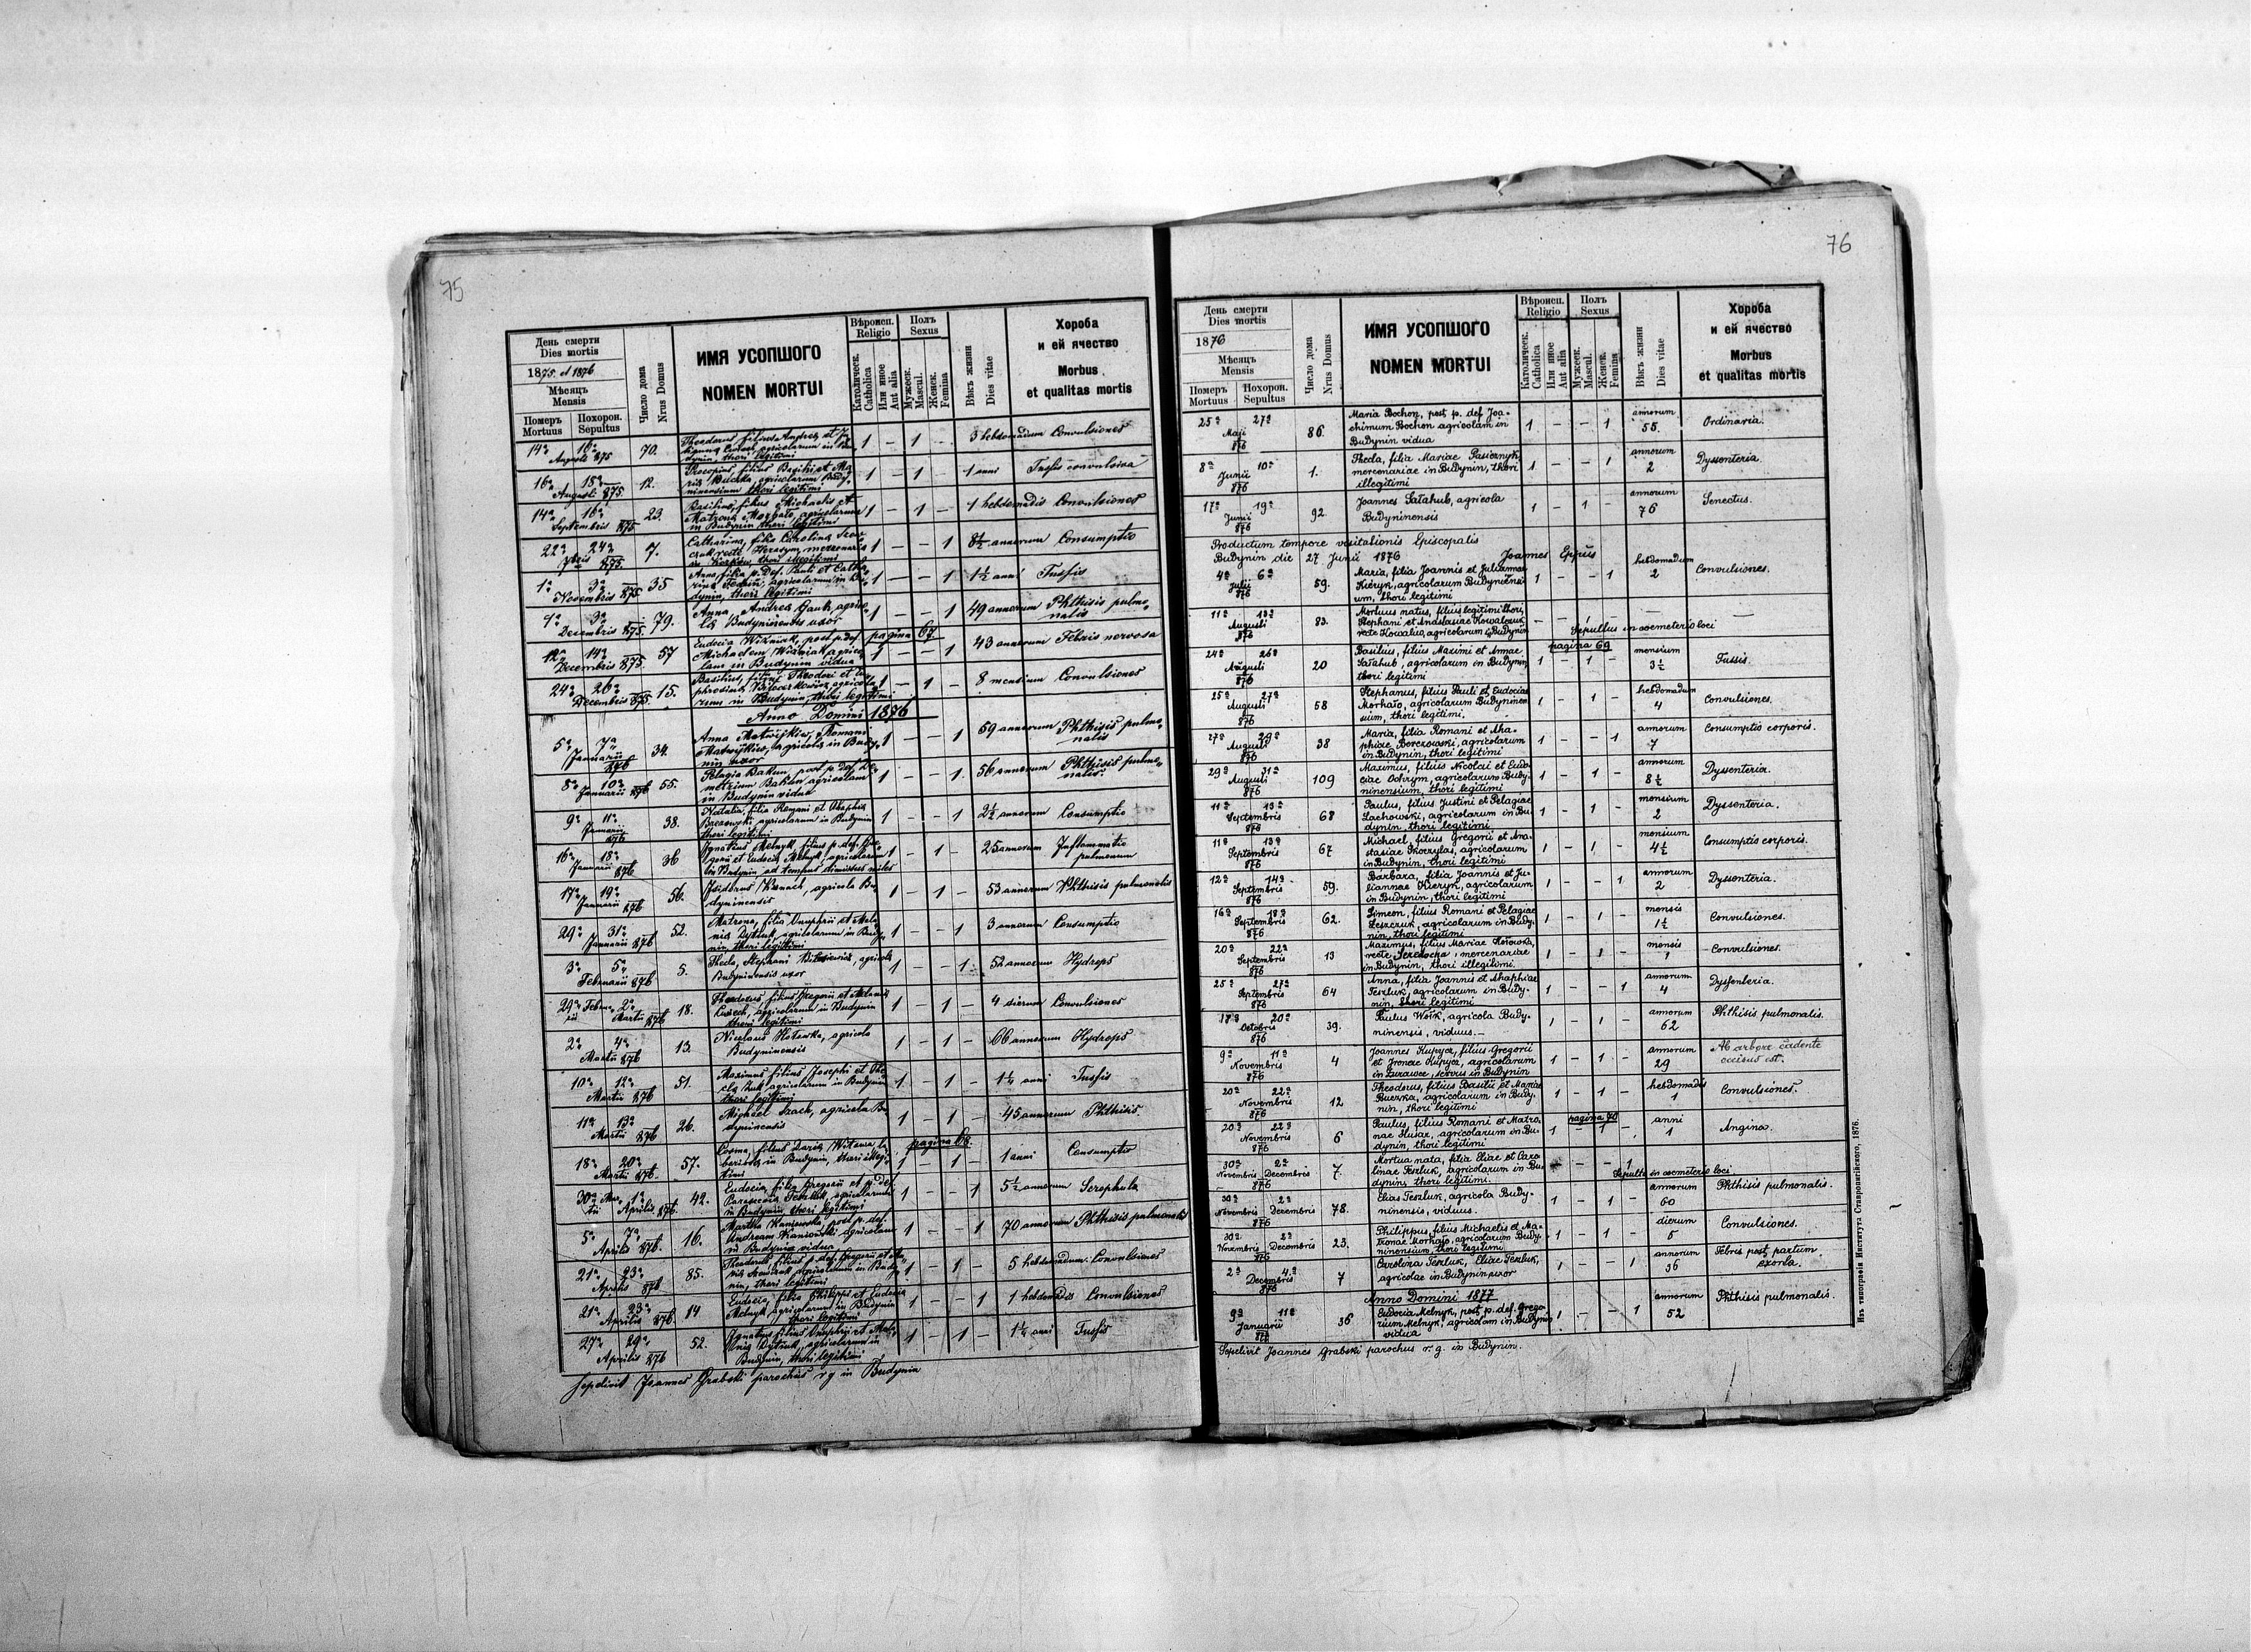 75
День смерти
Dies mortis
1875 et 1876
Мѣсяцъ
Mensis
Померъ Mortuus
Похорон. Sepultus
Число дома
Nrus Domus
ИМЯ УСОПШОГО
NOMEN MORTUI
Вѣроисп.
Religio
Католическ.
Catholica
Или иное
Aut alia
Полъ
Sexus
Мужеск.
Mascul.
Женск.
Femina
Вѣкъ жизни
Dies vitae
Хороба
и ей ячество
Morbus
et qualitas mortis
14a 16a Augusti 875 70. Theodorus filius Andreae et
agricolarum in Bu-
dynin, thori legitimi 1 – 1 – 3 hebdomadum Convulsiones
16a 18a Augusti 875. 12. Procopius, filius Basilii et Ma-
riae Buczka, agricolarum Budy-
ninensium thori legitimi 1 – 1 – 1 anni Tussis convulsiva
14a 16a Septembris 875 23. Basilius, filius Michaelis et
Matronae Morhało, agricolarum
in Budynin thori legitimi 1 – 1 – 1 hebdomadis Convulsiones
22a 24a 7bris 875. 7. Catharina, filia Carolinae
recte Herasym, mercenariae
thori illegitimi 1 – – 1 8½ annorum Consumptio
1a 3a Novembris 875. 35 Anna filia p. def. Pauli et Catha-
rinae agricolarum in Bu-
dynin, thori legitimi 1 – – 1 1½ anni Tussis
1a 3a Decembris 875. 79. Anna, Andreae Hauk, agrico-
lae Budyninensis uxor 1 – – 1 49 annorum Phthisis pulmo-
nalis
pagina 67
12a 14a Decembris 875. 57 Eudocia Wizniak, post p. def.
Michaelem Wizniak, agrico-
lam in Budynin vidua 1 – – 1 43 annorum Febris nervosa
24a 26a Decembris 875. 15. Basilius, filius Theodori et Eu-
phrosinae agricola-
rum in Budynin, thori legitimi 1 – 1 – 8 mensium Convulsiones
Anno Domini 1876
5a 7a Januarii 876 34. Anna Matwijkiw, Romani
Matwijkiw, agricolae in Budy-
nin uxor 1 – – 1 59 annorum Phthisis pulmo-
nalis
8a 10a Januarii 876 55. Pelagia Bakun, post p. def. De-
metrium Bakun agricolam
in Budynin vidua 1 – – 1. 56 annorum Phthisis pulmo-
nalis.
9a 11a Januarii 876 38. Natalia, filia Romani et Ahaphiae
agricolarum in Budynin
thori legitimi 1 – – 1 2½ annorum Consumptio
16a 18a Januarii 876 36 Ignatius Melnyk filius p. def. Gre-
gorii et Eudociae Melnyk, agricolarum
in Budynin, ad tempus dimissus miles 1 – 1 – 25 annorum Inflammatio
pulmonum
17a 19a Januarii 876 56. Isidorus agricola Bu-
dyninensis 1 – 1 – 53 annorum Phthisis pulmonalis
29a 31a Januarii 876 52. Matrona, filia Onuphrii et Mela-
niae agricolarum in Budy-
nin, thori legitimi 1 – – 1 3 annorum Consumptio
3a 5a Februarii 876 5. Thecla, Stephani agricolae
Budyninensis uxor 1 – – 1. 52 annorum Hydrops
29a Februa-
rii 2a Martii 876 18. Theodorus, filius Gregorii et Melaniae
agricolarum in Budynin
thori legitimi 1 – 1 – 4 dierum Convulsiones
2a 4a Martii 876 13. Nicolaus agricola
Budyninensis 1 – 1 – 66 annorum Hydrops
10a 12a Martii 876 51. Maximus filius Josephi et The-
clae agricolarum in Budynin
thori legitimi 1. – 1 – 1¼ anni Tussis
11a 13a Martii 876 26. Michael agricola Bu-
dyninensis 1 – 1 – 45 annorum Phthisis
pagina 68
18a 20a Martii 876. 57. Cosma, filius Dariae
in Budynin, thori illegi-
timi 1 – 1 – 1 anni Consumptio
30a Mar-
tii 1a Aprilis 876 42. Eudocia, filia Gregorii et p. def.
Parascevae Teszluk, agricolarum
in Budynin, thori legitimi 1 – – 1 5½ annorum Scrophula
5a 7a Aprilis 876. 16. Martha post p. def.
Andream agricolam
in Budynin vidua 1 – – 1 70 annorum Phthisis pulmonalis
21a 23a Aprilis 876 85. Theodorus, filius p. def. Gregorii et
agricolarum in Budy-
nin, thori legitimi 1 – 1 – 5 hebdomadum Convulsiones
21a 23a Aprilis 876. 14 Eudocia, filia Philippi et Eudociae
Melnyk, agricolarum in Budynin
thori legitimi 1 – – 1 1 hebdomadis Convulsiones
27a 29a Aprilis 876 52. Ignatius filius Onuphrii et Mela-
niae agricolarum in
Budynin, thori legitimi 1 – 1 – 1¼ anni Tussis
Sepelivit Joannes Grabski parochus r g in Budynin
76
День смерти
Dies mortis
1876
Мѣсяцъ
Mensis
Померъ Mortuus
Похорон. Sepultus
Число дома
Nrus Domus
ИМЯ УСОПШОГО
NOMEN MORTUI
Вѣроисп.
Religio
Католическ.
Catholica
Или иное
Aut alia
Полъ
Sexus
Мужеск.
Mascul.
Женск.
Femina
Вѣкъ жизни
Dies vitae
Хороба
и ей ячество
Morbus
et qualitas mortis
25a 27a Maji 876 86. Maria Bochon, post p. def. Joa-
chimum Bochon agricolam in
Budynin vidua 1 – – 1 annorum 55. Ordinaria.
8a 10a Junii 876 1. Thecla, filia Mariae Pasicznyk,
mercenariae in Budynin, thori
illegitimi 1 – – 1 annorum 2 Dyssenteria.
17a 19a Junii 876 92. Joannes Sałahub, agricola
Budyninensis 1 – 1 – annorum 76 Senectus.
Productum tempore visitationis Episcopalis
Budynin die 27 Junii 1876 Joannes Eppus
4a 6a Julii 876 59. Maria, filia Joannis et Juliannae
Kieryk, agricolarum Budyninensi-
um, thori legitimi 1 – – 1 hebdomadum 2 Convulsiones.
11a 13a Augusti 876 83. Mortuus natus, filius legitimi thori,
Stephani et Anastasiae Kowalczuk,
recte Kowaluo, agricolarum in Budynin – – 1 – — —
Sepultus in coemeterio loci
pagina 69
24a 26a Augusti 876 20 Basilius, filius Maximi et Annae
Sałahub, agricolarum in Budynin,
thori legitimi 1 – 1 – mensium 3½ Tussis.
25a 27a Augusti 876 58 Stephanus, filius Pauli et Eudociae
Morhało, agricolarum Budyninen-
sium, thori legitimi. 1 – 1 – hebdomadum 4 Convulsiones.
27a 29a Augusti 876 38 Maria, filia Romani et Aha-
phiae Berezowski, agricolarum
in Budynin, thori legitimi 1 – – 1 annorum 7 Consumptio corporis.
29a 31a Augusti 876 109 Maximus, filius Nicolai et Eudo-
ciae Ochrym, agricolarum Budy-
ninensium, thori legitimi 1 – 1 – annorum 8½ Dyssenteria.
11a 13a Septembris 876 68 Paulus, filius Justini et Pelagiae
Lachowski, agricolarum in Bu-
dynin, thori legitimi 1 – 1 – mensium 2 Dyssenteria.
11a 13a Septembris 876 67 Michael, filius Gregorii et Ana-
stasiae agricolarum
in Budynin, thori legitimi 1 – 1 – mensium 4½ Consumptio corporis.
12a 14a Septembris 876 59. Barbara, filia Joannis et Ju-
liannae Kieryk, agricolarum
in Budynin, thori legitimi 1 – – 1 annorum 2 Dyssenteria.
16a 18a Septembris 876 62. Simeon, filius Romani et Pelagiae
Leszczuk, agricolarum in Budy-
nin, thori legitimi 1 – 1 – mensis 1½ Convulsiones.
20a 22a Septembris 876 13 Maximus, filius Mariae
recte mercenariae
in Budynin, thori illegitimi. 1 – 1 – mensis 1 Convulsiones.
25a 27a Septembris 876 64 Anna, filia Joannis et Ahaphiae
Teszluk, agricolarum in Budy-
nin, thori legitimi 1 – – 1 annorum 4 Dyssenteria.
18a 20a Octobris 876 39. Paulus Wołk, agricola Budy-
ninensis, viduus.– 1 – 1 – annorum 62 Phthisis pulmonalis.
9a 11a Novembris 876 4 Joannes Kupycz, filius Gregorii
et Irenae Kupycz, agricolarum
in Żurawce, servus in Budynin 1 – 1 – annorum 29 Ab arbore cadente
occisus est.
20a 22a Novembris 876 12 Theodorus, filius Basilii et Mariae
Buczka, agricolarum in Budy-
nin, thori legitimi 1 – 1 – hebdomadis 1 Convulsiones.
pagina 70
20a 22a Novembris 876 6 Paulus, filius Romani et Matro-
nae Husar, agricolarum in Bu-
dynin, thori legitimi 1 – 1 – anni 1 Angina.
30a Novembris 2a Decembris 876 7. Mortua nata, filia Eliae et Caro-
linae Teszluk, agricolarum in Bu-
dynin, thori legitimi. – – 1
Sepulta in coemeterio loci.
30a Novembris 2a Decembris 876 78. Elias Teszluk, agricola Budy-
ninensis, viduus. 1 – 1 – annorum 60 Phthisis pulmonalis.
30a Novembris 2a Decembris 876 23. Philippus, filius Michaelis et Ma-
tronae Morhało, agricolarum Budy-
ninensium, thori legitimi 1 – 1 – dierum 5 Convulsiones.
2a 4a Decembris 876 7 Carolina Teszluk, Eliae Teszluk,
agricolae in Budynin uxor 1 – – 1 annorum 36 Febris post partum
exorta.
Anno Domini 1877
9a 11a Januarii 877 36 Eudocia Melnyk, post p. def. Grego-
rium Melnyk, agricolam in Budynin
vidua 1 – – 1 annorum 52 Phthisis pulmonalis.
Sepelivit Joannes Grabski parochus r. g. in Budynin.
Изъ типографіи Института Ставропигійского, 1876.